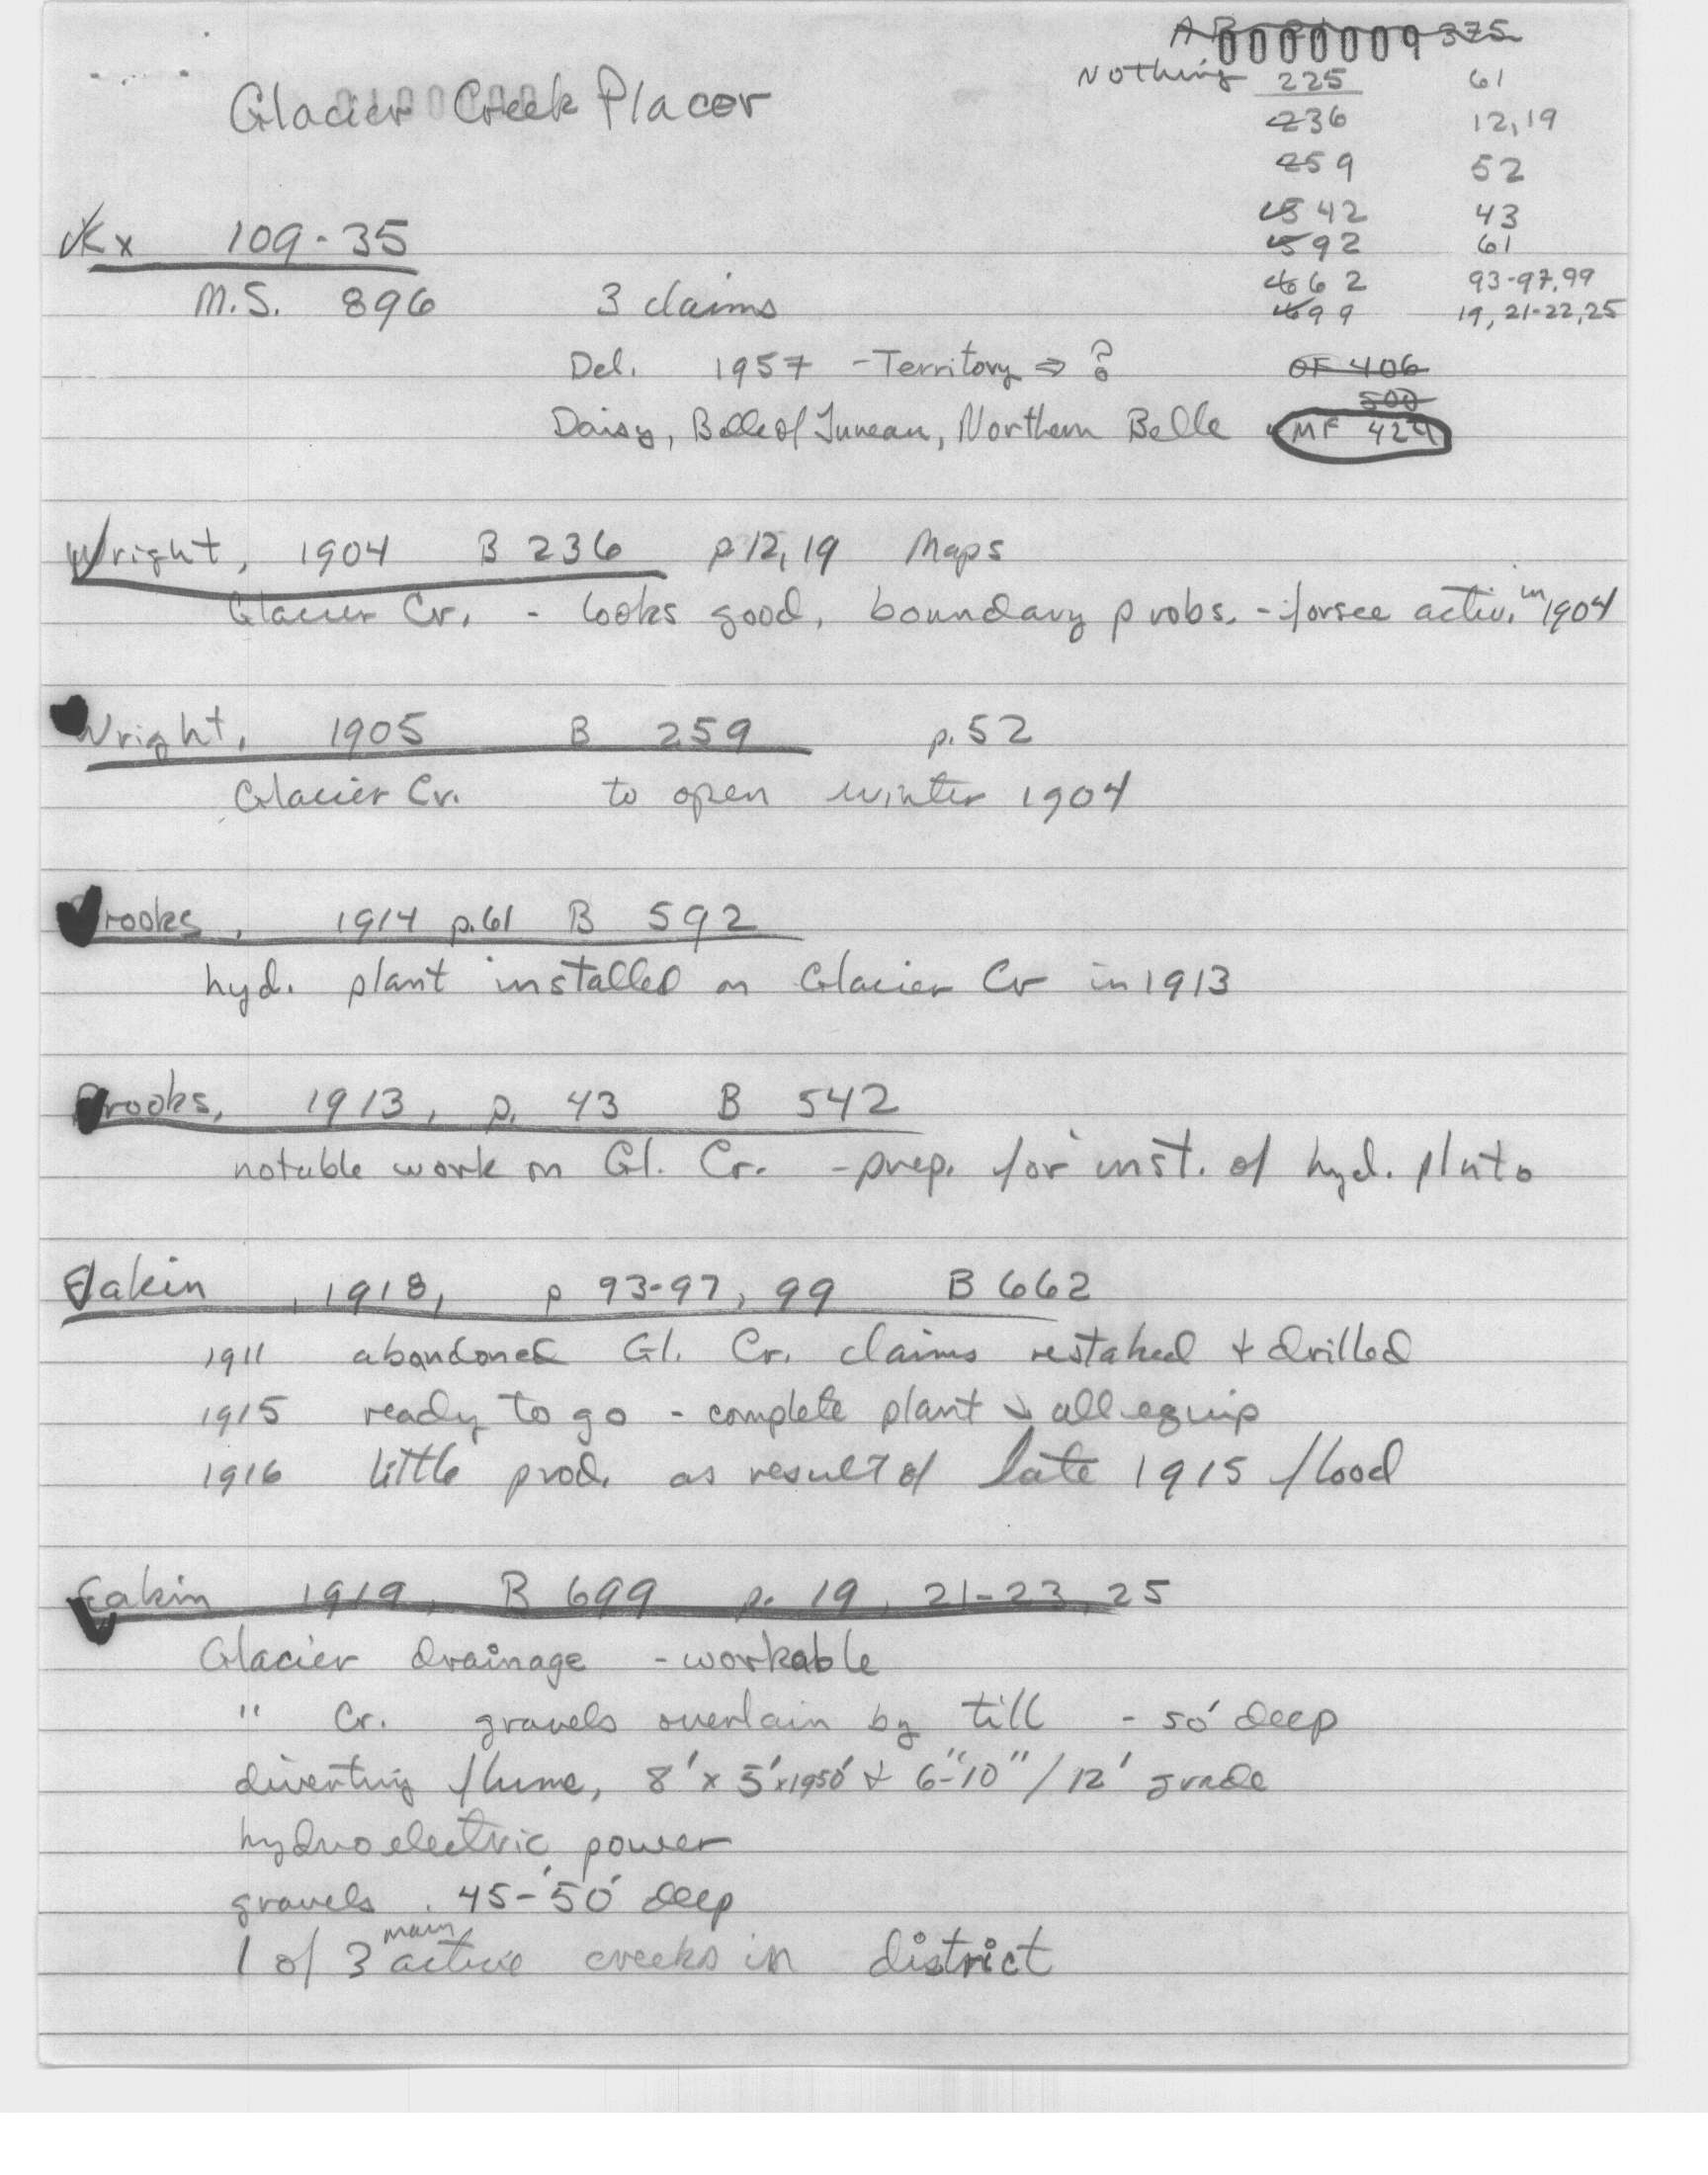 0000009 375
Nothing 225 61
Glacier Creek Placer
236 12,19
259 52
542 43
Kx 109-35
592 61
662 93-97,99
M.S. 896 3 claims
699 19, 21-22,25
Del. 1957 - Territory ⇒ ?
OF 406
500
Daisy, Belle of Juneau, Northern Belle MF 424
Wright, 1904 B 236 p 12, 19 Maps
Glacier Cr. - looks good, boundary probs. - forsee activ. in 1904
Wright, 1905 B 259 p. 52
Glacier Cr. to open winter 1904
Brooks, 1914 p.61 B 592
hyd. plant installed on Glacier Cr in 1913
Brooks, 1913, p. 43 B 542
notable work on Gl. Cr. - prep. for inst. of hyd. plnt.
Eakin, 1918, p 93-97, 99 B 662
1911 abandoned Gl. Cr. claims restaked + drilled
1915 ready to go - complete plant & all equip
1916 little prod. as result of late 1915 flood
Eakin 1919, B 699 p. 19, 21-23, 25
Glacier drainage - workable
" Cr. gravels overlain by till - 50' deep
diverting flume, 8' x 5' x 1950' & 6"-10" / 12' grade
hydroelectric power
gravels 45-50' deep
1 of 3 main active creeks in district